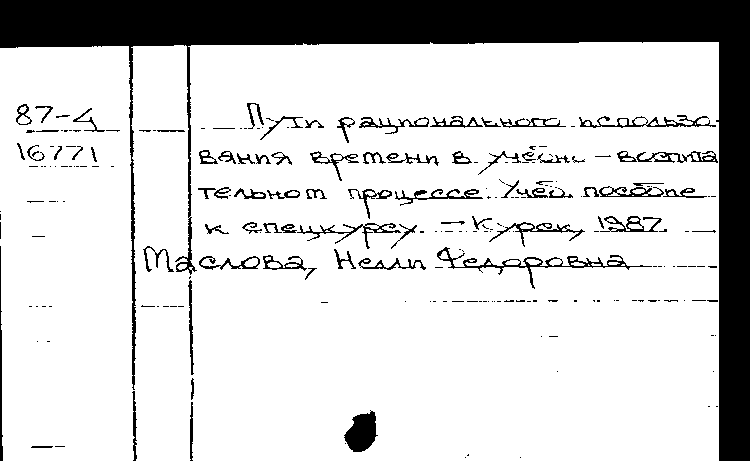 87-4
Пути рационального использо-
16771
вания времени в учебно - воспита
тельном процессе. Учеб. пособие
к спецкурсу. - Курск, 1987.
Маслова, Нелли Федоровна